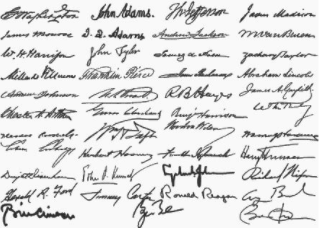 G Washington John Adams. Th Jefferson James Madison
James Monroe J. Q. Adams Andrew Jackson M Van Buren
W. H. Harrison John Tyler James K Polk Zachary Taylor
Millard Fillmore Franklin Pierce James Buchanan Abraham Lincoln
Andrew Johnson R B Hayes James A. Garfield
Chester A. Arthur Grover Cleveland Benj Harrison
Theodore Roosevelt Wm H Taft Woodrow Wilson Warren G Harding
Calvin Coolidge Herbert Hoover Harry Truman
Dwight Eisenhower John F. Kennedy Richard Nixon
Gerald R. Ford Jimmy Carter Ronald Reagan
Bill Clinton